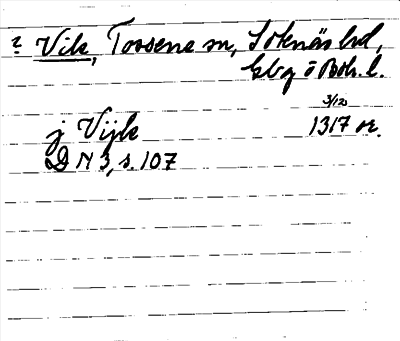 ? Vik, Torsens sn, Sotenäs hd,
Gbg o Boh. l.
3/12
j Vijk 1317 or.
DN 3, s. 107